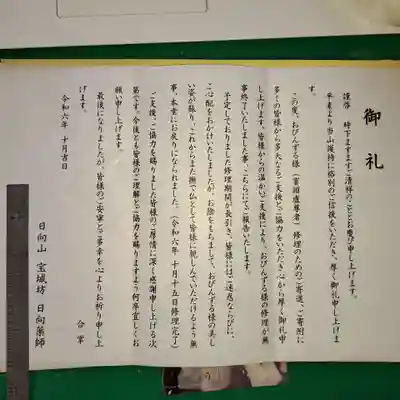 御礼
謹啓 時下ますますご清祥のこととお慶び申し上げます。
平素より当山護持に格別のご信援をいただき、厚く御礼申し上げま
す。
この度、おびんずる様(賓頭盧尊者)修理のためのご寄進、ご寄附に
多くの皆様から多大なるご支援とご協力をいただき心から厚く御礼申
し上げます。皆様からの温かいご支援により、おびんずる様の修理が無
事終了いたしました事、こちらにてご報告いたします。
予定しておりました修理期間が長引き、皆様にはご迷惑ならびに、
ご心配をおかけいたしましたが、お陰をもちまして、おびんずる様の美し
い姿が蘇り、これからまた撫で仏として皆様に親しんでいただけるよう無
事、本堂にお戻りになられました。(令和六年 十月十五日修理完了)
ご支援、ご協力を賜りました皆様のご厚情に深く感謝申し上げる次
第です。今後とも皆様のご理解とご協力を賜りますよう何卒宜しくお
願い申し上げます。
最後になりましたが、皆様のご安寧とご多幸を心よりお祈り申し上
げます。
合掌
令和六年 十月吉日
日向山 宝城坊 日向薬師